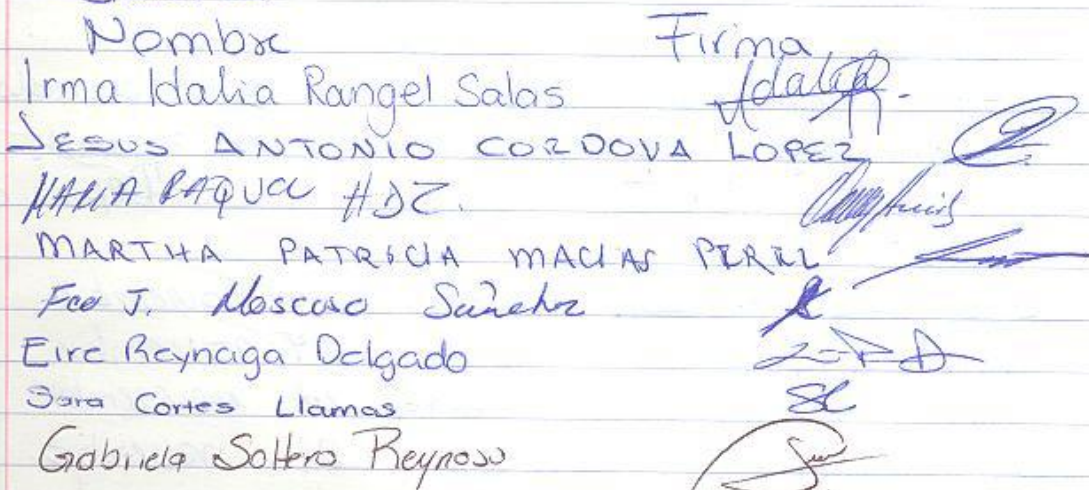 Nombre Firma
Irma Idalia Rangel Salas Idalia
JESUS ANTONIO CORDOVA LOPEZ
MARIA RAQUEL HDZ.
MARTHA PATRICIA MACIAS PEREZ
Fco J. Moscoso Sánchez
Eire Reynaga Delgado
Sara Cortes Llamas SC
Gabriela Soltero Reynoso